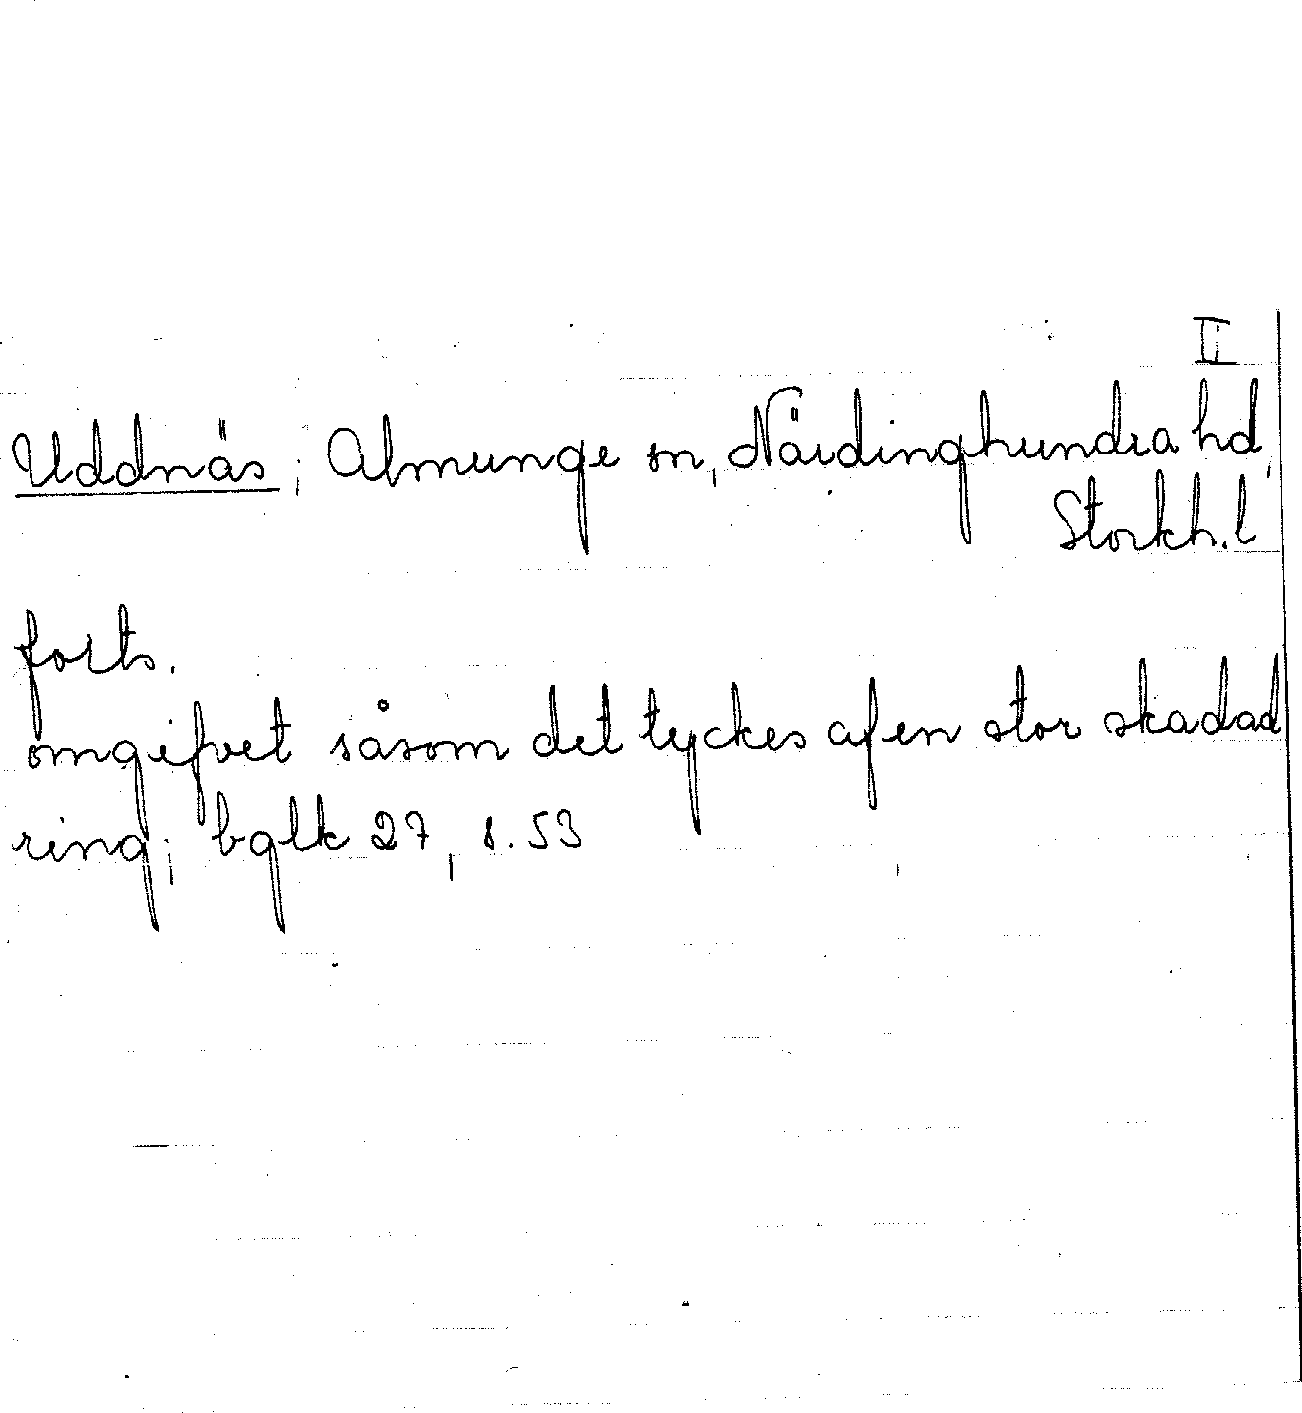 II
Uddnäs; Almunge sn, Närdinghundra hd,
Storkh. l
forts.
omgifvet såsom det tyckes af en stor skadad
ring; bglk 27, s. 53